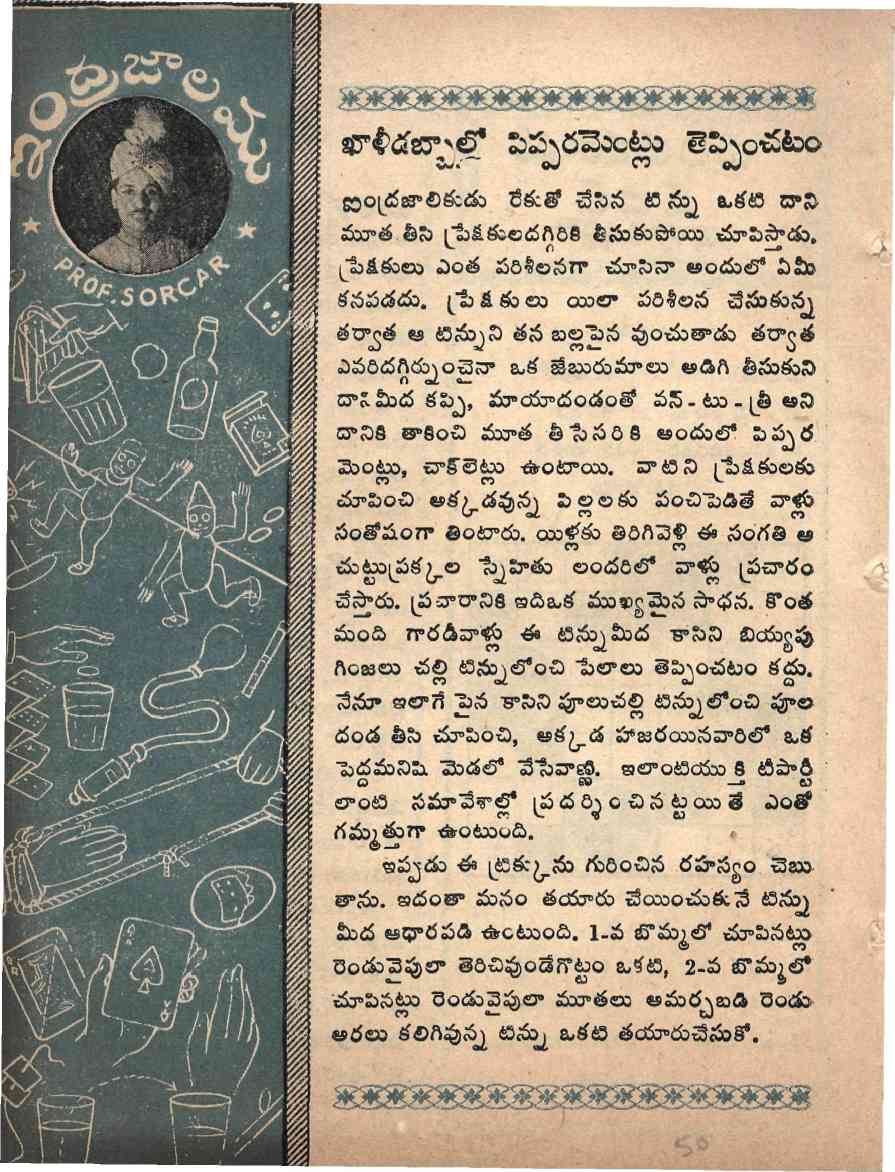 ఇంద్రజాలమ్మ
PROF. SORCAR
ఖాళీడబ్బాల్లో పిప్పరమెంట్లు తెప్పించటం
ఐంద్రజాలికుడు రేకుతో చేసిన టిన్ను ఒకటి దాని
మూత తీసి ప్రేక్షకులదగ్గిరికి తీసుకుపోయి చూపిస్తాడు.
ప్రేక్షకులు ఎంత పరిశీలనగా చూసినా అందులో ఏమీ
కనపడదు. ప్రేక్షకులు యిలా పరిశీలన చేసుకున్న
తర్వాత ఆ టిన్నుని తన బల్లపైన వుంచుతాడు తర్వాత
ఎవరిదగ్గిర్నుంచైనా ఒక జేబురుమాలు అడిగి తీసుకుని
దానిమీద కప్పి, మాయాదండంతో వన్-టు-త్రీ అని
దానికి తాకించి మూత తీసేసరికి అందులో పిప్పర
మెంట్లు, చాక్‌లెట్లు ఉంటాయి. వాటిని ప్రేక్షకులకు
చూపించి అక్కడవున్న పిల్లలకు పంచిపెడితే వాళ్లు
సంతోషంగా తింటారు. యిళ్లకు తిరిగివెళ్లి ఈ సంగతి ఆ
చుట్టుప్రక్కల స్నేహితు లందరిలో వాళ్లు ప్రచారం
చేస్తారు. ప్రచారానికి ఇదిఒక ముఖ్యమైన సాధన. కొంత
మంది గారడీవాళ్లు ఈ టిన్నుమీద కాసిని బియ్యపు
గింజలు చల్లి టిన్నులోంచి పేలాలు తెప్పించటం కద్దు.
నేనూ ఇలాగే పైన కాసిని పూలుచల్లి టిన్నులోంచి పూల
దండ తీసి చూపించి, అక్కడ హాజరయినవారిలో ఒక
పెద్దమనిషి మెడలో వేసేవాణ్ణి. ఇలాంటియుక్తి టీపార్టీ
లాంటి సమావేశాల్లో ప్రదర్శించినట్టయితే ఎంతో
గమ్మత్తుగా ఉంటుంది.
ఇప్పడు ఈ ట్రిక్కును గురించిన రహస్యం చెబు
తాను. ఇదంతా మనం తయారు చేయించుకునే టిన్ను
మీద ఆధారపడి ఉంటుంది. 1-వ బొమ్మలో చూపినట్లు
రెండువైపులా తెరిచివుండేగొట్టం ఒకటి, 2-వ బొమ్మలో
చూపినట్లు రెండువైపులా మూతలు అమర్చబడి రెండు
అరలు కలిగివున్న టిన్ను ఒకటి తయారుచేసుకో.
50